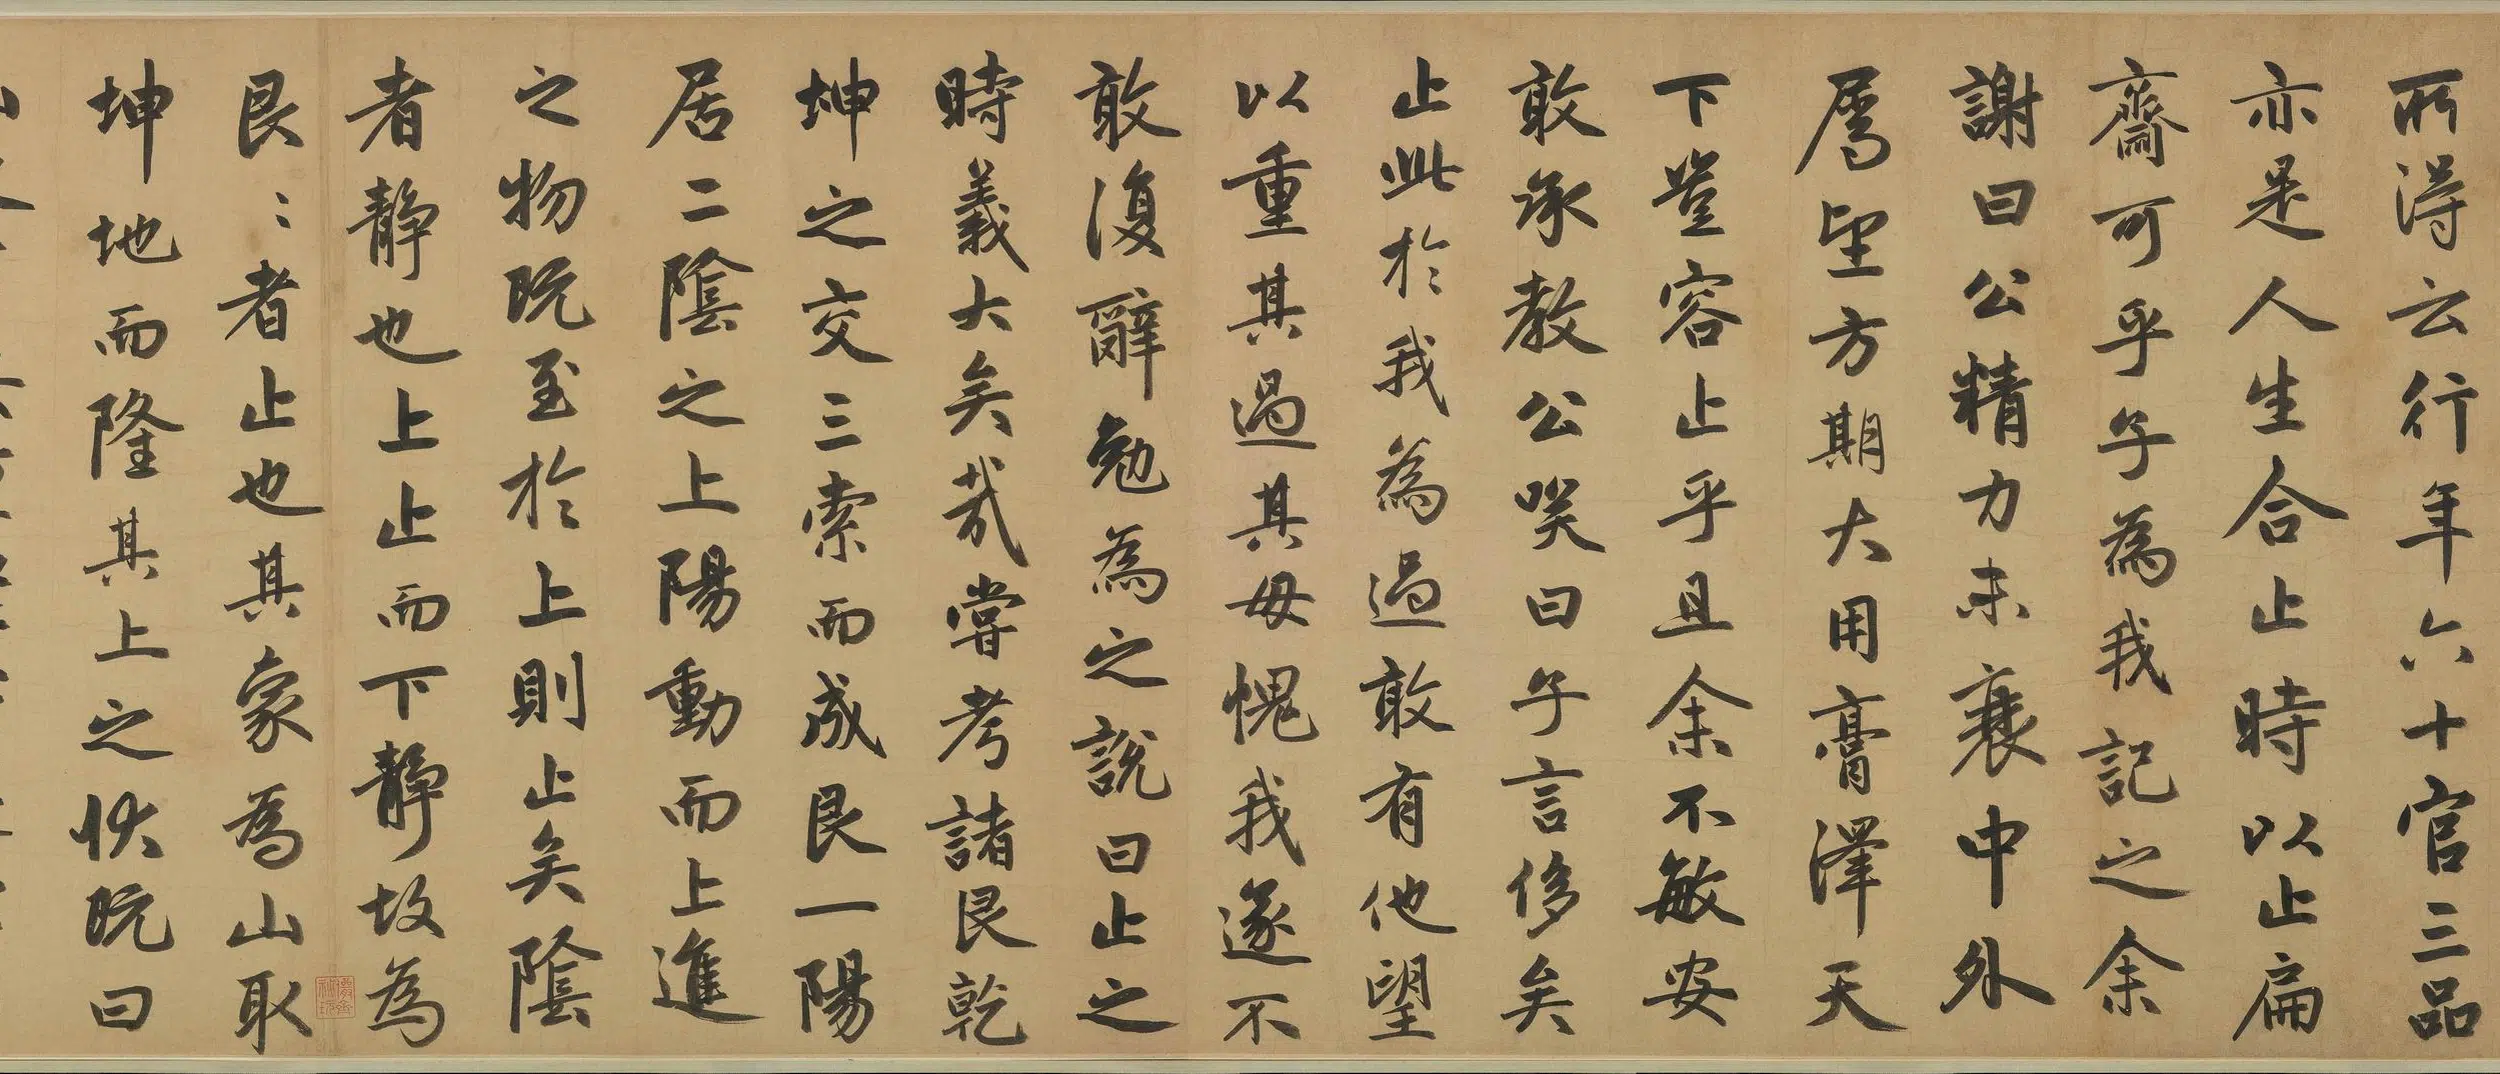 所得云行年六十官三品
亦是人生合止時以止扁
齋可乎子為我記之余
謝曰公精力未衰中外
属望方期大用膏澤天
下豈容止乎且余不敏安
敢承教公笑曰子言侈矣
止此於我為過敢有他望
以重其過其毋愧我遂不
敢復辭勉為之說曰止之
時義大矣哉嘗考諸艮乾
坤之交三索而成艮一陽
居二陰之上陽動而上進
之物既至於上則止矣陰
者靜也上止而下靜故為
艮〻者止也其象為山取
坤地而隆其上之狀既曰